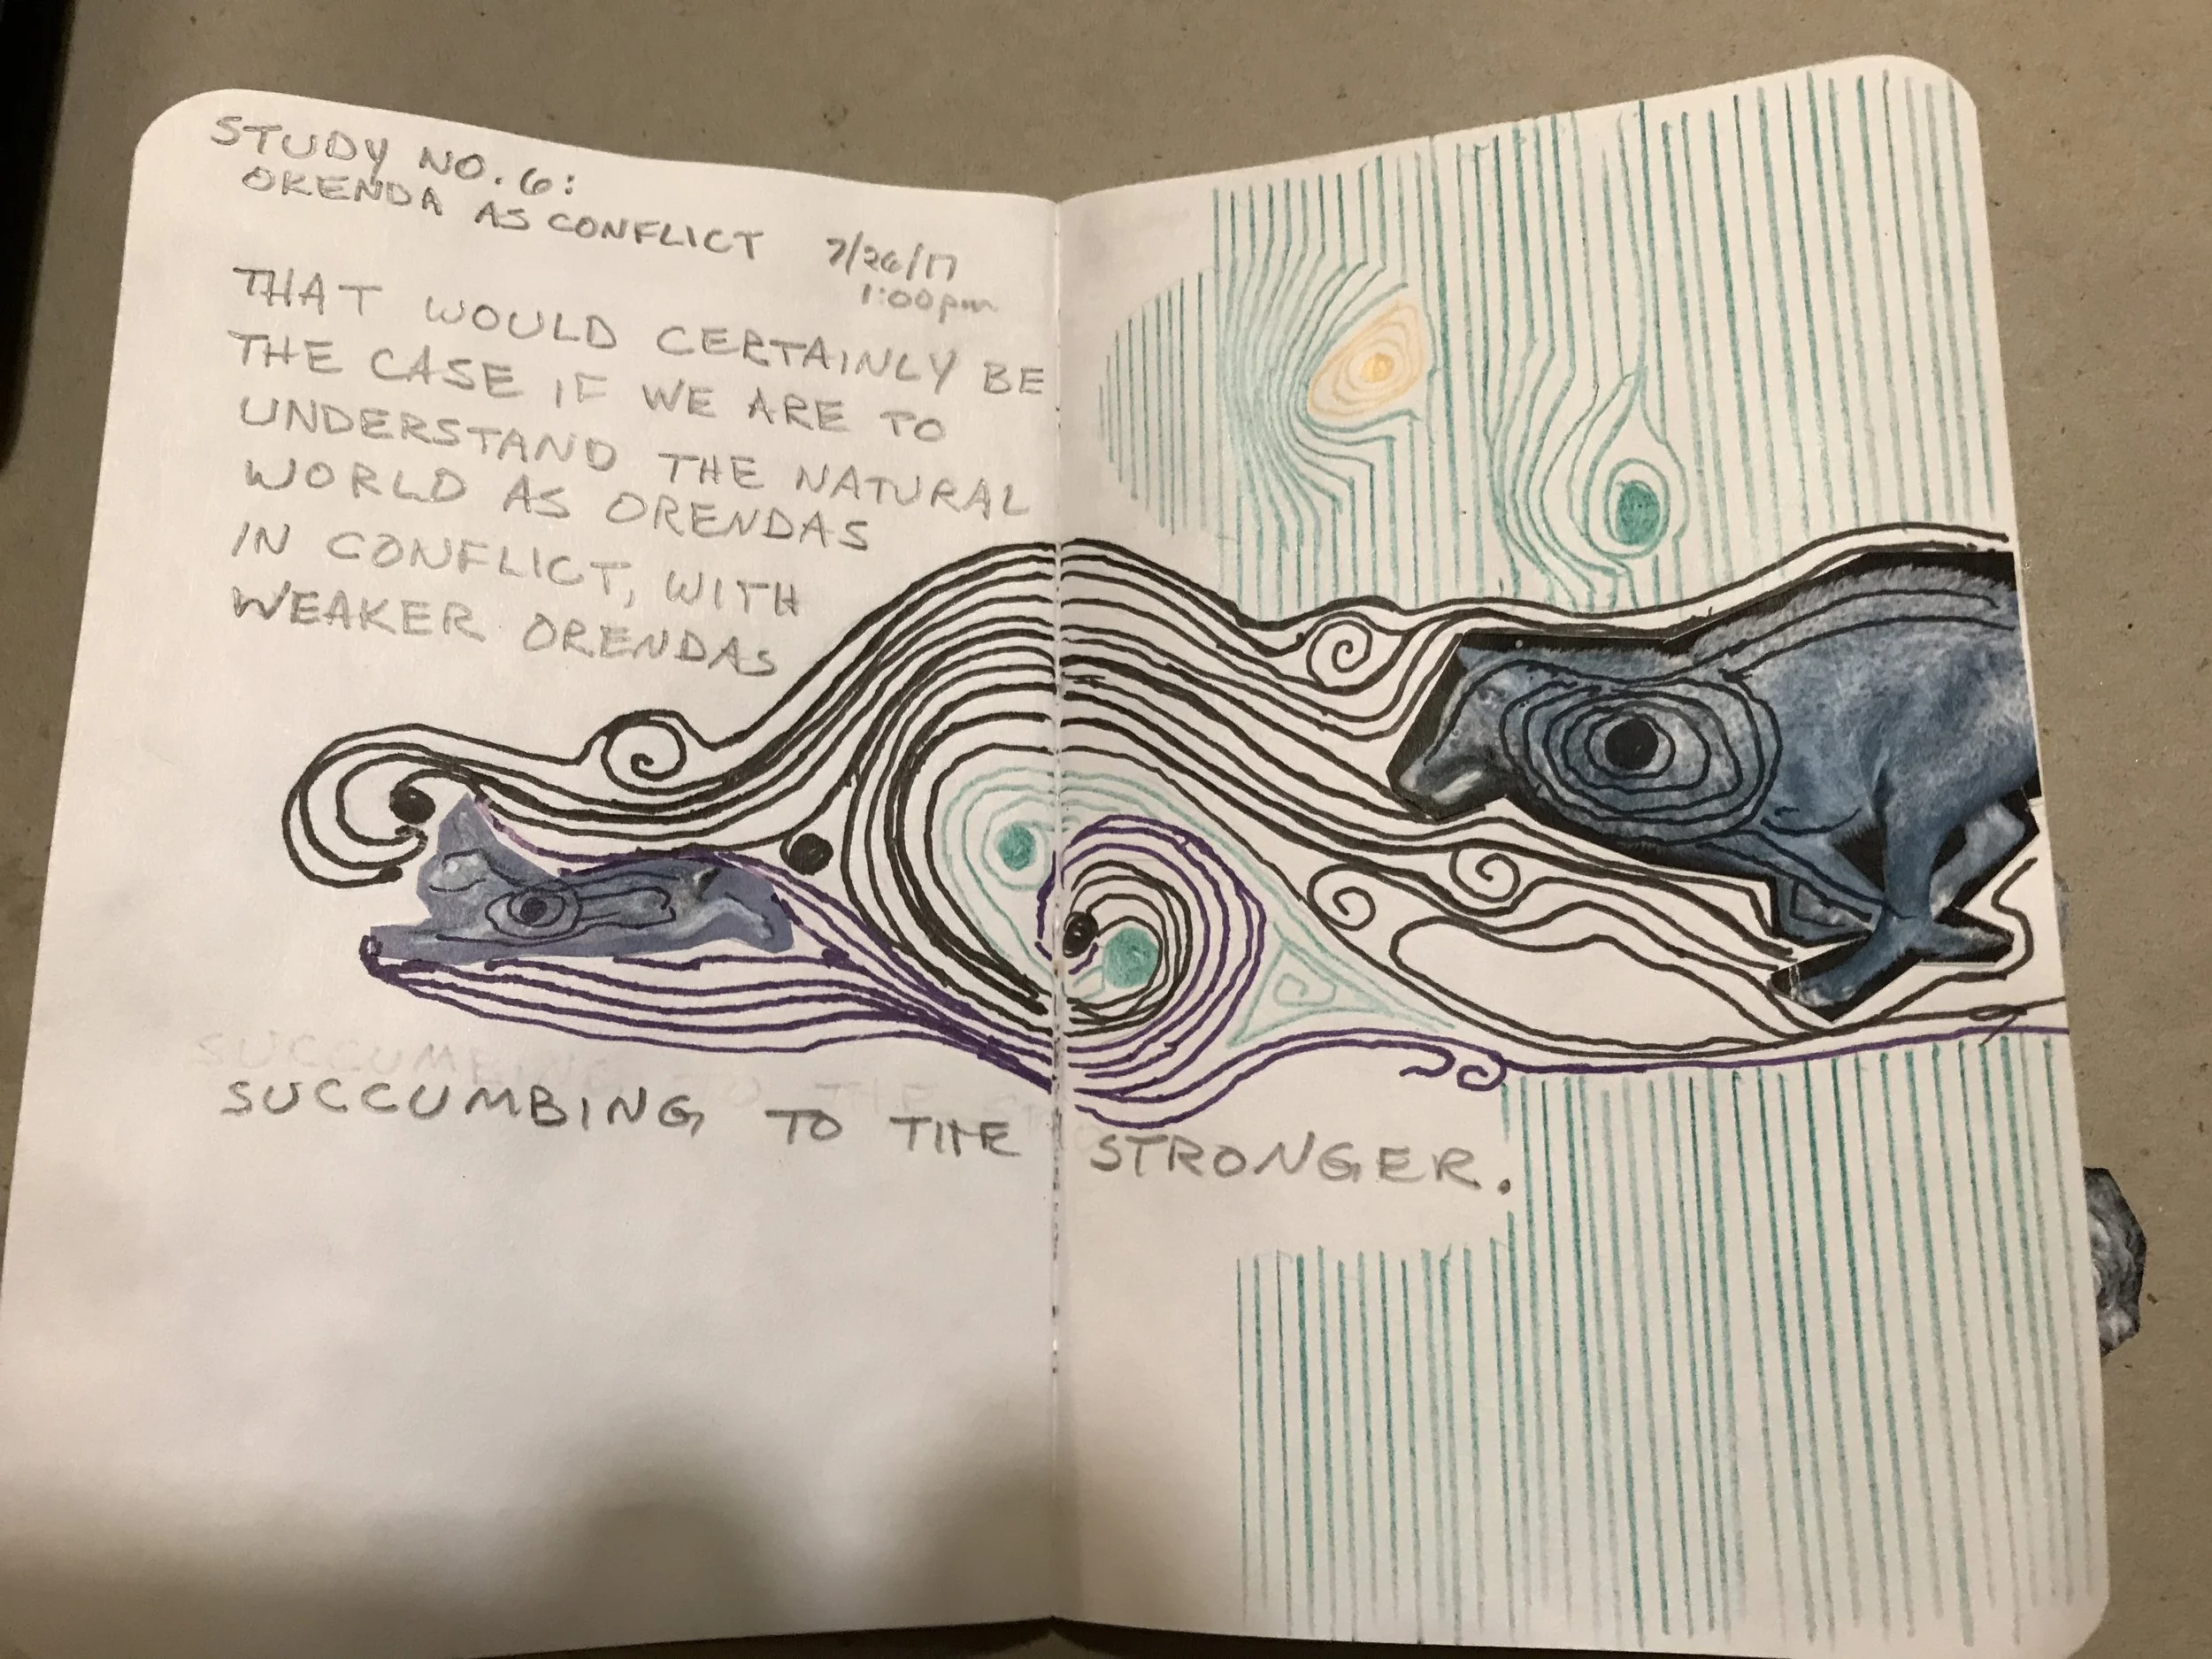 STUDY NO. 6:
ORENDA AS CONFLICT
7/26/17
1:00pm
THAT WOULD CERTAINLY BE
THE CASE IF WE ARE TO
UNDERSTAND THE NATURAL
WORLD AS ORENDAS
IN CONFLICT, WITH
WEAKER ORENDAS
SUCCUMBING TO THE STRONGER.